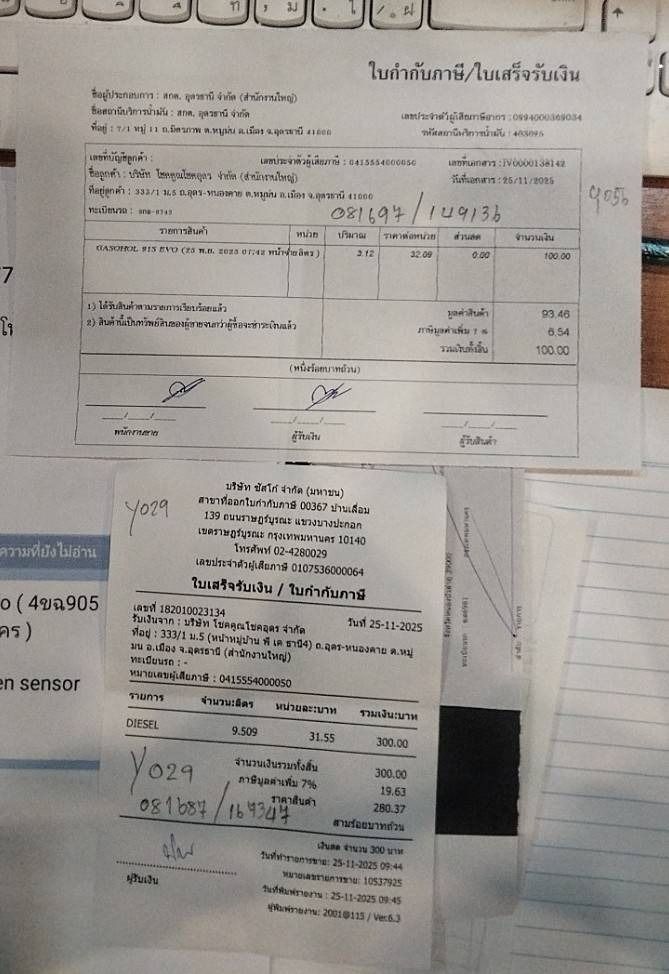 ใบกำกับภาษี/ใบเสร็จรับเงิน
ชื่อผู้ประกอบการ : สกต. อุดรธานี จำกัด (สำนักงานใหญ่)
ชื่อสถานีบริการน้ำมัน : สกต. อุดรธานี จำกัด
เลขประจำตัวผู้เสียภาษีอากร : 0994000369034
ที่อยู่ : 7/1 หมู่ 11 ถ.มิตรภาพ ต.หมูม่น อ.เมือง จ.อุดรธานี 41000
รหัสสถานีบริการน้ำมัน : 403095
เลขที่บัญชีลูกค้า :
เลขประจำตัวผู้เสียภาษี : 0415554000050
เลขที่เอกสาร : IV0000138142
ชื่อลูกค้า : บริษัท โชคคูณโชคอุดร จำกัด (สำนักงานใหญ่)
วันที่เอกสาร : 25/11/2025
ที่อยู่ลูกค้า : 333/1 ม.5 ถ.อุดร-หนองคาย ต.หมูม่น อ.เมือง จ.อุดรธานี 41000
Y056
ทะเบียนรถ :
081697/149136
รายการสินค้า หน่วย ปริมาณ ราคาต่อหน่วย ส่วนลด จำนวนเงิน
GASOHOL 91S EVO (25 พ.ย. 2025 07:42 หน้าจ่าย ลิตร ) 3.12 32.09 0.00 100.00
1) ได้รับสินค้าตามรายการเรียบร้อยแล้ว
มูลค่าสินค้า 93.46
2) สินค้านี้เป็นทรัพย์สินของผู้ขายจนกว่าผู้ซื้อจะชำระเงินแล้ว
ภาษีมูลค่าเพิ่ม 7 % 6.54
รวมเงินทั้งสิ้น 100.00
(หนึ่งร้อยบาทถ้วน)
พนักงานขาย ผู้รับเงิน ผู้รับสินค้า
บริษัท ซัสโก้ จำกัด (มหาชน)
สาขาที่ออกใบกำกับภาษี 00367 บ้านเลื่อม
Y029
139 ถนนราษฎร์บูรณะ แขวงบางปะกอก
เขตราษฎร์บูรณะ กรุงเทพมหานคร 10140
โทรศัพท์ 02-4280029
เลขประจำตัวผู้เสียภาษี 0107536000064
ใบเสร็จรับเงิน / ใบกำกับภาษี
เลขที่ 182010023134
วันที่ 25-11-2025
รับเงินจาก : บริษัท โชคคูณโชคอุดร จำกัด
ที่อยู่ : 333/1 ม.5 (หน้าหมู่บ้าน พี เค ธานี4) ถ.อุดร-หนองคาย ต.หมู
ม่น อ.เมือง จ.อุดรธานี (สำนักงานใหญ่)
ทะเบียนรถ : -
หมายเลขผู้เสียภาษี : 0415554000050
รายการ จำนวน:ลิตร หน่วยละ:บาท รวมเงิน:บาท
DIESEL 9.509 31.55 300.00
จำนวนเงินรวมทั้งสิ้น 300.00
ภาษีมูลค่าเพิ่ม 7% 19.63
ราคาสินค้า 280.37
Y029
081687/169347
สามร้อยบาทถ้วน
เงินสด จำนวน 300 บาท
วันที่ทำรายการขาย: 25-11-2025 09:44
หมายเลขรายการขาย: 10537925
ผู้รับเงิน
วันที่พิมพ์รายงาน : 25-11-2025 09:45
ผู้พิมพ์รายงาน: 2001@115 / Ver.6.3
ความที่ยังไม่อ่าน
o ( 4ขฉ905
คร )
en sensor